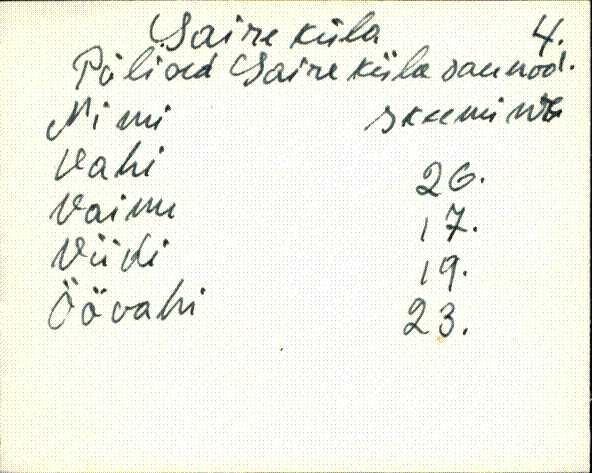 Saire küla 4.
Põlised Saire küla saunad.
Nimi skeemi nr
Vahi 26.
Vaimu 17.
Viidi 19.
Öövahi 23.